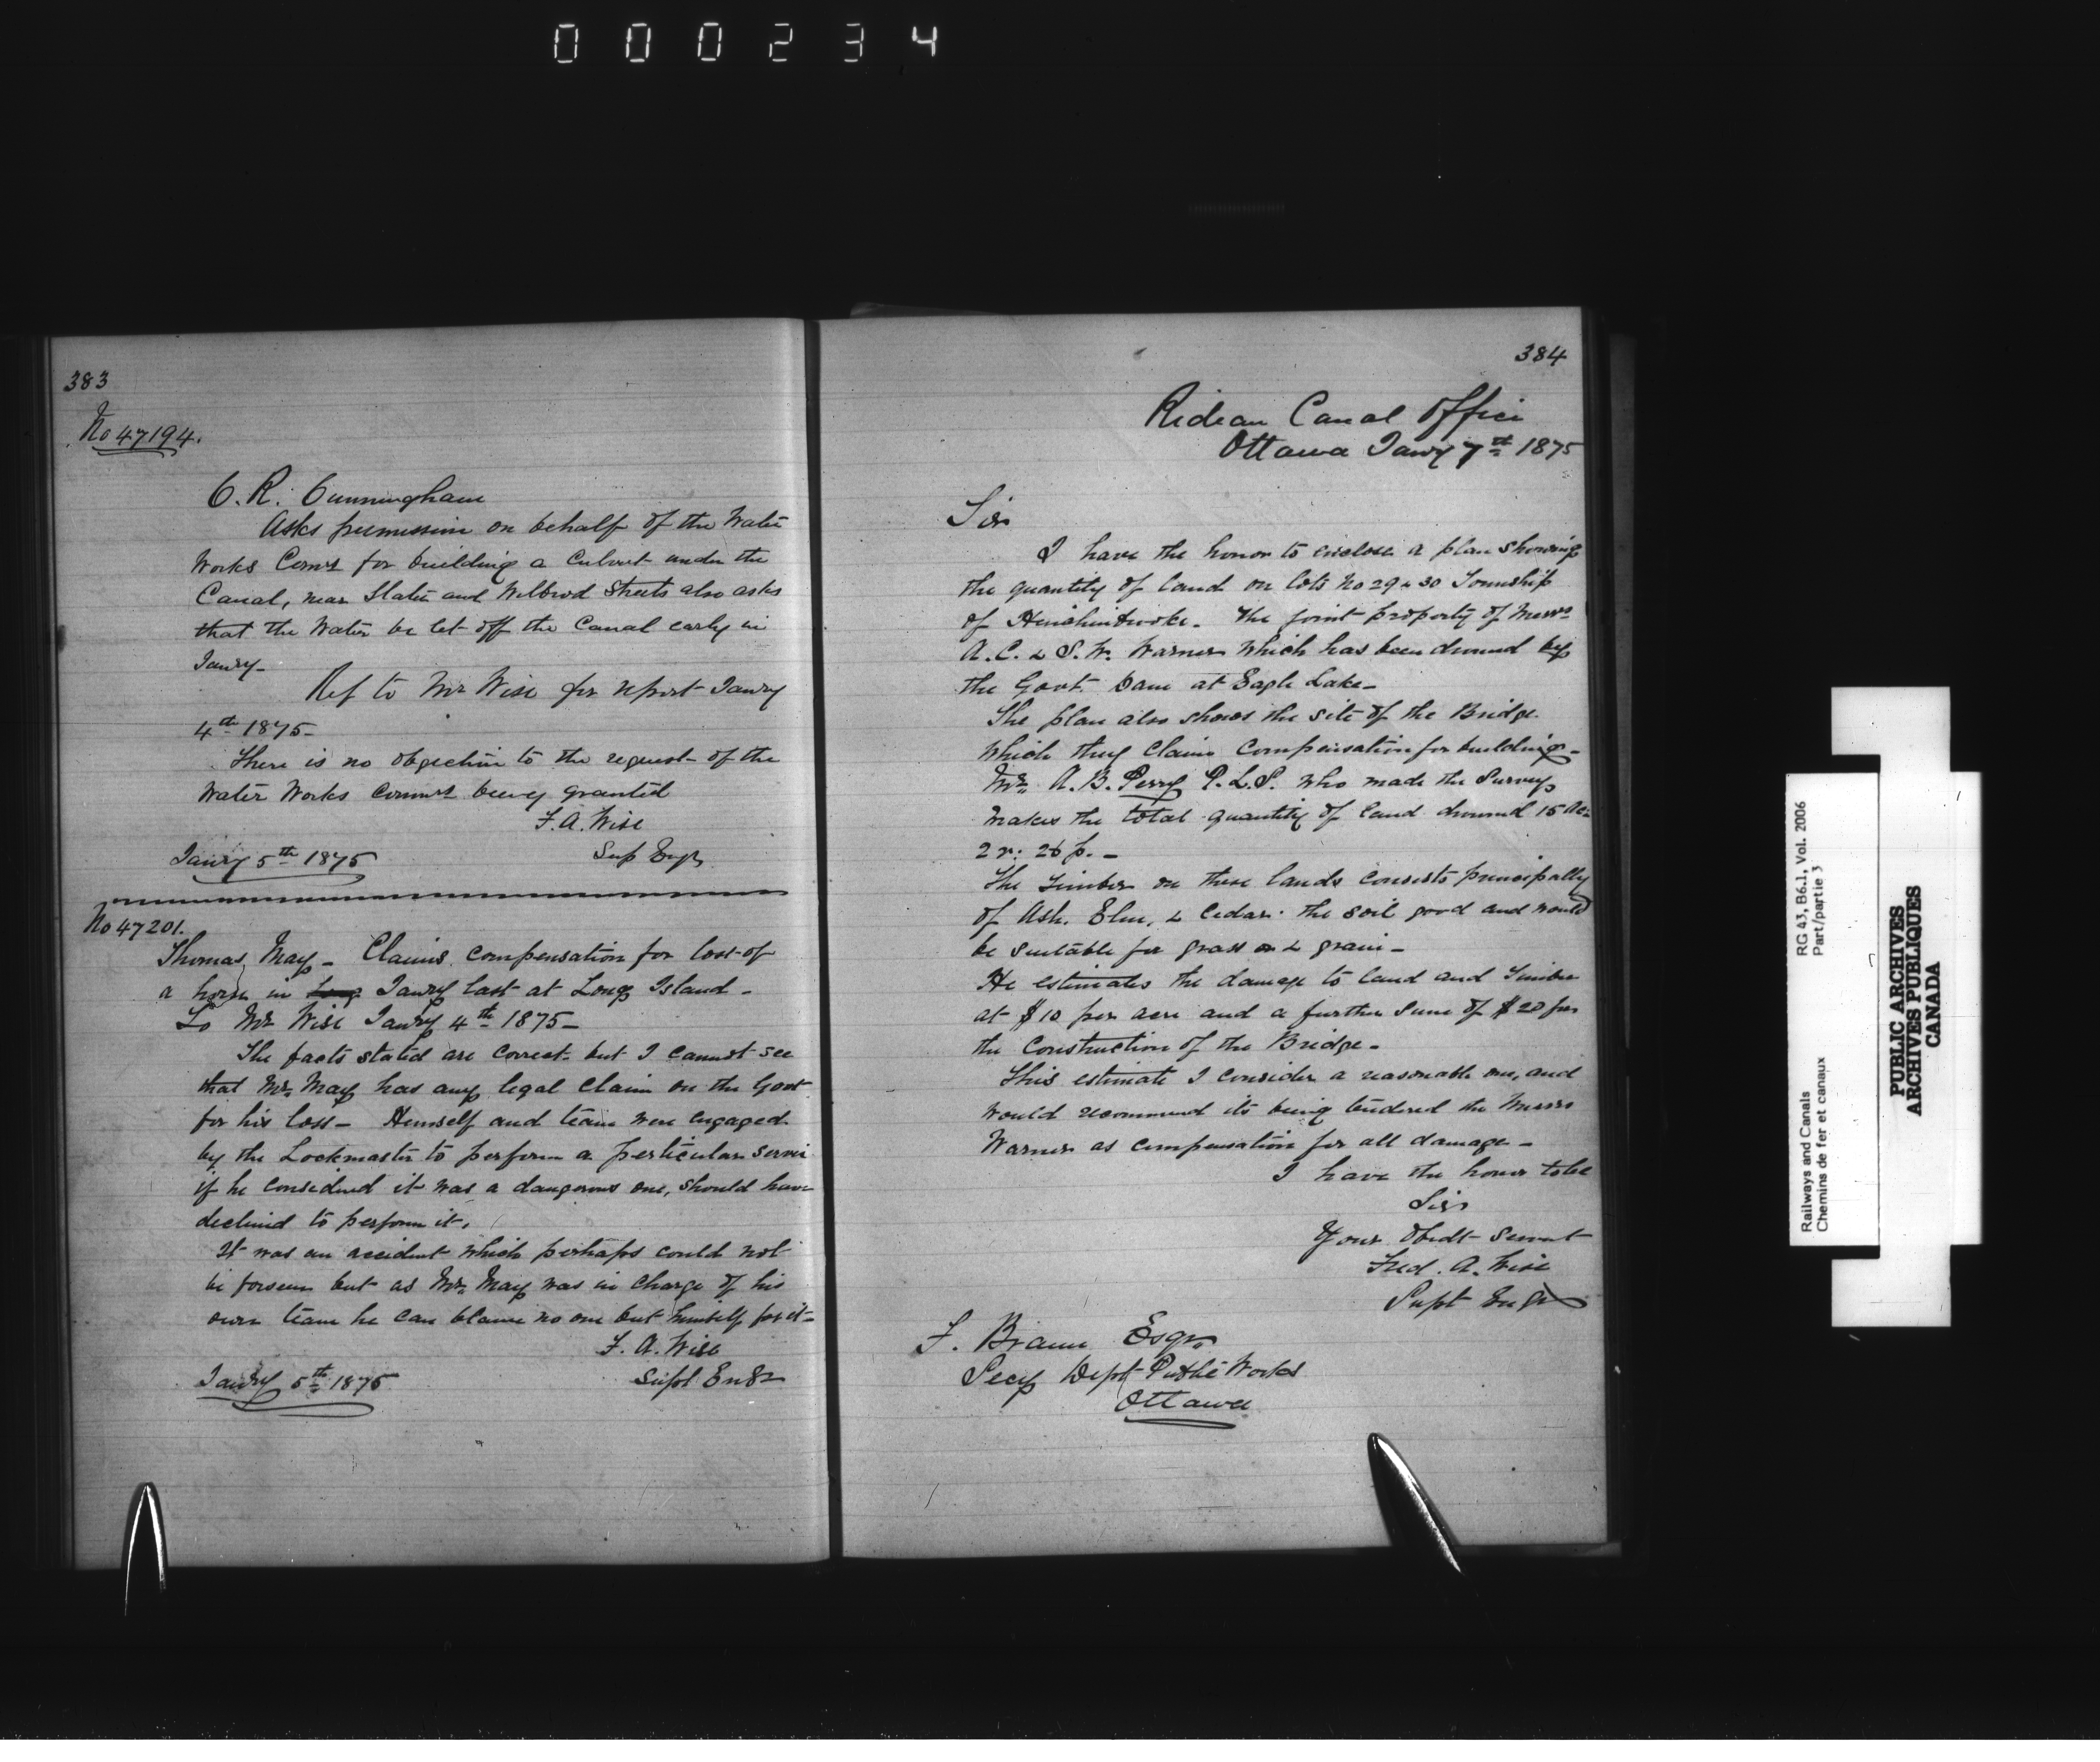 000234
383
No 47194.
C. R. Cunningham
Asks permission on behalf of the Water
Works Comrs for building a Culvert under the
Canal, near Slater and Wilbrod Streets also asks
that the Water be let off the Canal early in
Janry-
Ref to Mr Wise for report Janry
4th 1875-
There is no objection to the request of the
Water Works Commrs being granted
F. A. Wise
Janry 5th 1875 Sup Engr
No 47201.
Thomas May - Claims compensation for loss of
a horse in Janry last at Long Island -
To Mr Wise Janry 4th 1875-
The facts stated are correct but I cannot see
that Mr. May has any legal claim on the Govt
for his loss - Himself and team were engaged
by the Lockmaster to perform a perticular service
if he considered it was a dangerous one, should have
declined to perform it.
It was an accident which perhaps could not
be forseen but as Mr. May was in charge of his
own team he can blame no one but himself for it-
F. A. Wise
Janry 5th 1875 Supt Engr
384
Rideau Canal Office
Ottawa Janry 7th 1875
Sir
I have the honor to enclose a plan showing
the quantity of land on lots No 29 & 30 Township
of Hinchinbrooke. The joint property of Messrs
A. C. & S. W. Warner which has been drowned by
the Govt. Dam at Eagle Lake-
The plan also shows the site of the Bridge
which they claim compensation for building-
Mr. A. B. Perry P. L. S. who made the Survey
makes the total quantity of land drowned 15 Ac.
2 r: 26 p. -
The timber on these lands consists principally
of Ash, Elm, & Cedar. the soil good and would
be suitable for grass & grain -
He estimates the damage to land and timber
at $10 per acre and a further sum of $20 for
the Construction of the Bridge -
This estimate I consider a reasonable one, and
would recommend its being tendered the Messrs
Warner as compensation for all damage -
I have the honor to be
Sir
Your Obedt Servt
Fred. A. Wise
Supt Engr
F. Braun Esqr.
Secy Dept Public Works
Ottawa
RG 43, B6.1, Vol. 2006
Part/partie 3
Railways and Canals
Chemins de fer et canaux
PUBLIC ARCHIVES
ARCHIVES PUBLIQUES
CANADA